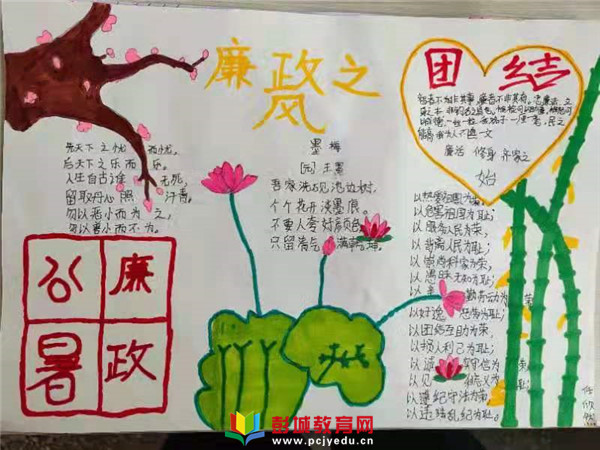 廉政之
风
团结
墨梅
[元]王冕
吾家洗砚池边树,
个个花开淡墨痕。
不要人夸好颜色,
只留清气满乾坤。
先天下之忧而忧,
后天下之乐而乐。
人生自古谁无死,
留取丹心照汗青。
勿以恶小而为之,
勿以善小而不为。
公廉
署政
廉洁 修身 齐家之
始
以热爱祖国为荣,
以危害祖国为耻;
以服务人民为荣,
以背离人民为耻;
以崇尚科学为荣,
以愚昧无知为耻;
以辛勤劳动为荣
以好逸恶劳为耻;
以团结互助为荣,
以损人利己为耻;
以诚实守信为荣
以见利忘义为耻;
以遵纪守法为荣
以违法乱纪为耻。
彭城教育网
www.pcjyedu.cn